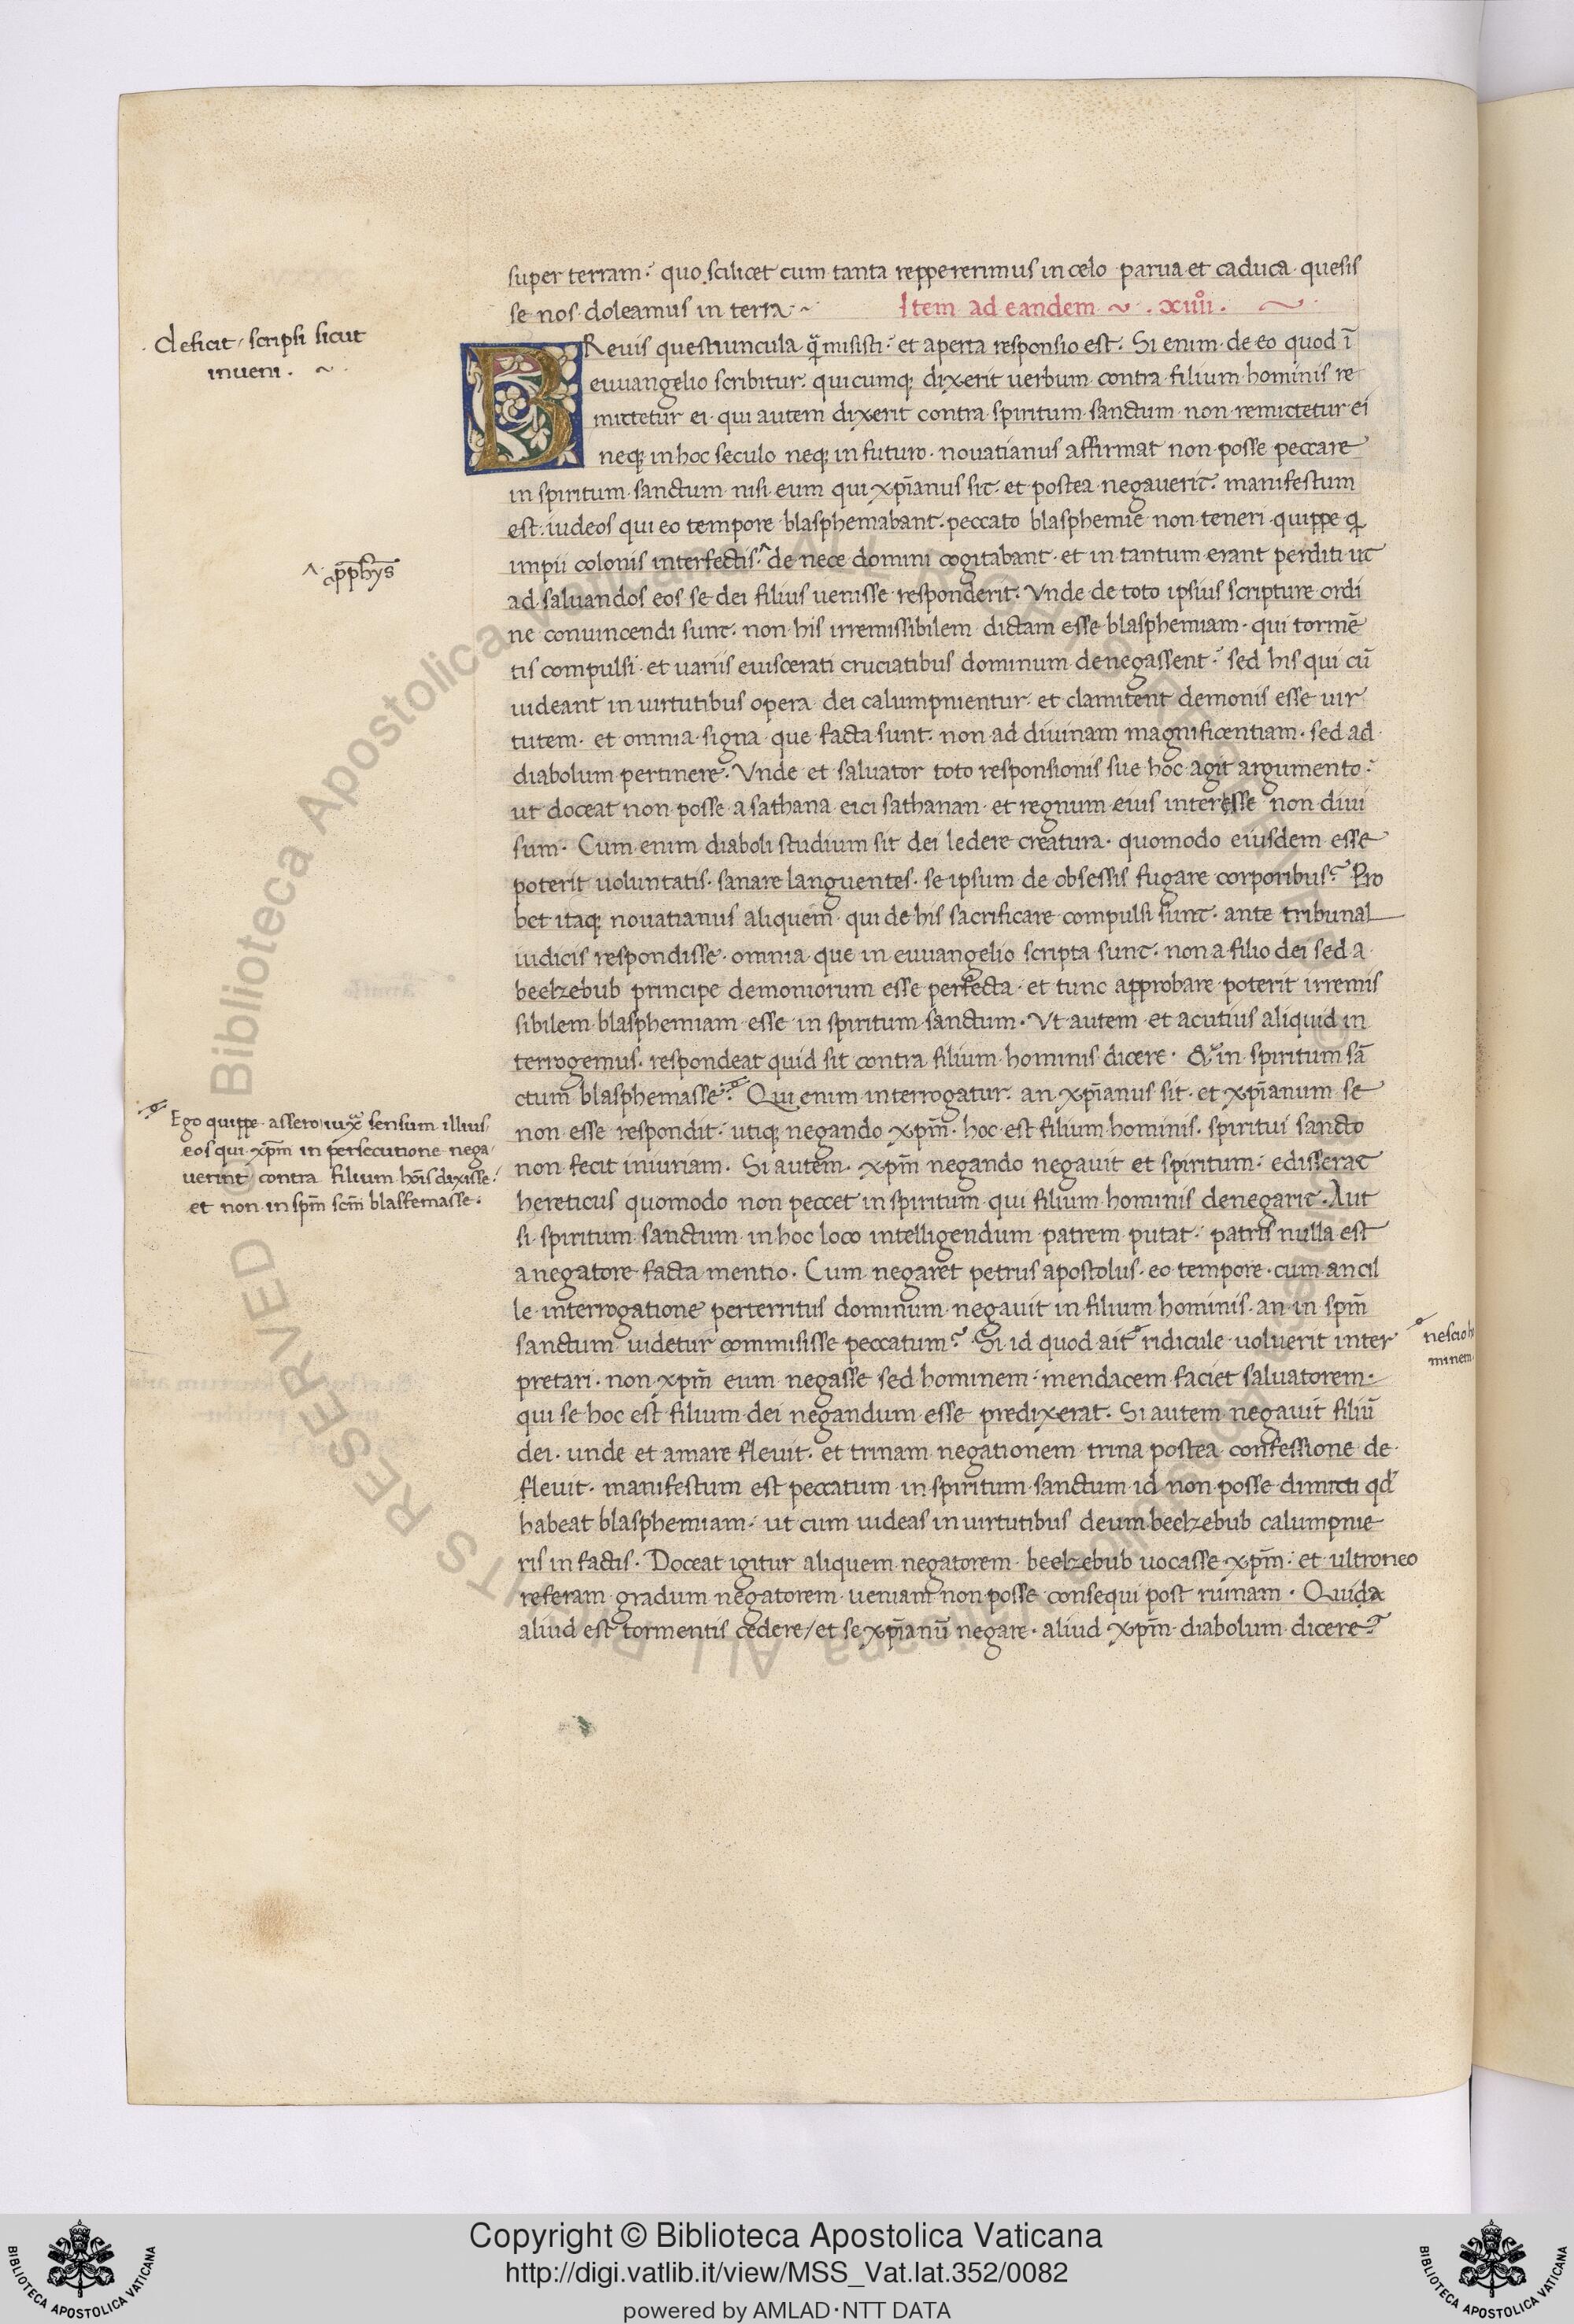 super terram. quo scilicet cum tanta reppererimus in celo parua et caduca quesis
se nos doleamus in terra.~ Item ad eandem ~ . xiiii. ~
Deficit, scripsi sicut
inueni. ~
BReuis questiuncula q̄ misisti. et aperta responsio est. Si enim de eo quod ī
euuangelio scribitur. quicumq; dixerit uerbum contra filium hominis re
mictetur ei. qui autem dixerit contra spiritum sanctum non remictetur ei
neq; in hoc seculo neq; in futuro. nouatianus affirmat non posse peccare
in spiritum sanctum nisi eum qui xp̄ianus sit. et postea negauerit. manifestum
est. iudeos qui eo tempore blasphemabant. peccato blasphemie non teneri. quippe q
impii colonis interfectis.^ de nece domini cogitabant. et in tantum erant perditi ut
^. p̄ph̄ys
ad saluandos eos se dei filius uenisse responderit. Vnde de toto ipsius scripture ordi
ne conuincendi sunt. non his irremissibilem dictam esse blasphemiam. qui tormē
tis compulsi et uariis euiscerati cruciatibus dominum denegassent. sed his qui cū
uideant in uirtutibus opera dei calumpnientur. et clamitent demonis esse uir
tutem. et omnia signa que facta sunt. non ad diuinam magnificentiam. sed ad
diabolum pertinere. Vnde et saluator toto responsionis sue hoc agit argumento.
ut doceat non posse a sathana eici sathanan et regnum eius interesse non diui
sum. Cum enim diaboli studium sit dei ledere creatura. quomodo eiusdem esse
poterit uoluntatis. sanare languentes. se ipsum de obsessis fugare corporibus? Pro
bet itaq; nouatianus aliquem qui de his sacrificare compulsi sunt. ante tribunal
iudicis respondisse. omnia que in euuangelio scripta sunt. non a filio dei sed a
beelzebub principe demoniorum esse perfecta. et tunc approbare poterit irremis
sibilem blasphemiam esse in spiritum sanctum. Vt autem et acutius aliquid in
terrogemus. respondeat quid sit contra filium hominis dicere. & in spiritum sā
ctum blasphemasse? Qui enim interrogatur. an xp̄ianus sit. et xp̄ianum se
Ego quippe assero iuxᵃ sensum illius
eos qui xp̄m in persecutione nega
uerint contra filium hōis dixisse.
et non in sp̄m sc̄m blasfemasse.
non esse respondit. utiq; negando xp̄m. hoc est filium hominis. spiritui sancto
non fecit iniuriam. Si autem xp̄m negando negauit et spiritum. edisserat
hereticus quomodo non peccet in spiritum qui filium hominis denegarit. Aut
si spiritum sanctum in hoc loco intelligendum patrem putat. patris nulla est
a negatore facta mentio. Cum negaret petrus apostolus. eo tempore. cum ancil
le interrogatione perterritus dominum negauit in filium hominis. an in sp̄m
sanctum uidetur commisisse peccatum? Si id quod ait ridicule uoluerit inter
nescio ho
minem.
pretari. non xp̄m eum negasse sed hominem. mendacem faciet saluatorem.
qui se hoc est filium dei negandum esse predixerat. Si autem negauit filiū
dei. unde et amare fleuit. et trinam negationem trina postea confessione de
fleuit. manifestum est peccatum in spiritum sanctum id non posse dimicti qd
habeat blasphemiam. ut cum uideas in uirtutibus deum beelzebub calumpnie
ris in factis. Doceat igitur aliquem negatorem beelzebub uocasse xp̄m. et ultroneo
referam gradum negatorem ueniam non posse consequi post ruinam. Quida
aliud est tormentis cedere, et se xp̄ianū negare. aliud xp̄m diabolum dicere?
© Biblioteca Apostolica Vaticana ALL RIGHTS RESERVED
Copyright © Biblioteca Apostolica Vaticana
http://digi.vatlib.it/view/MSS_Vat.lat.352/0082
powered by AMLAD·NTT DATA
BIBLIOTECA APOSTOLICA VATICANA
BIBLIOTECA APOSTOLICA VATICANA